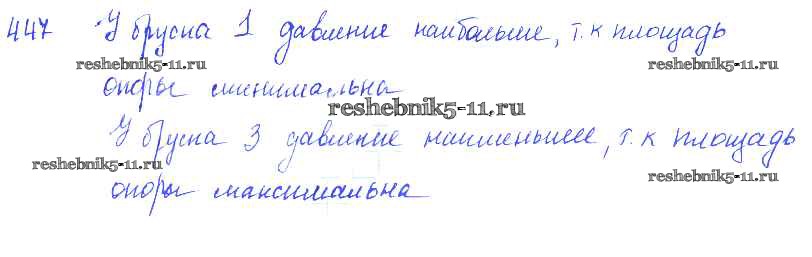 447 У бруска 1 давление наибольшее, т.к площадь
reshebnik5-11.ru reshebnik5-11.ru
опоры минимальна
reshebnik5-11.ru
У бруска 3 давление наименьшее, т.к площадь
reshebnik5-11.ru reshebnik5-11.ru
опоры максимальна